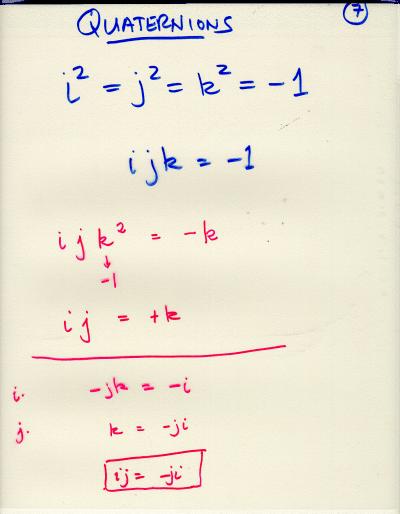 QUATERNIONS
7
i² = j² = k² = -1
ijk = -1
ijk² = -k
↓
-1
ij = +k
i. -jk = -i
j. k = -ji
ij = -ji